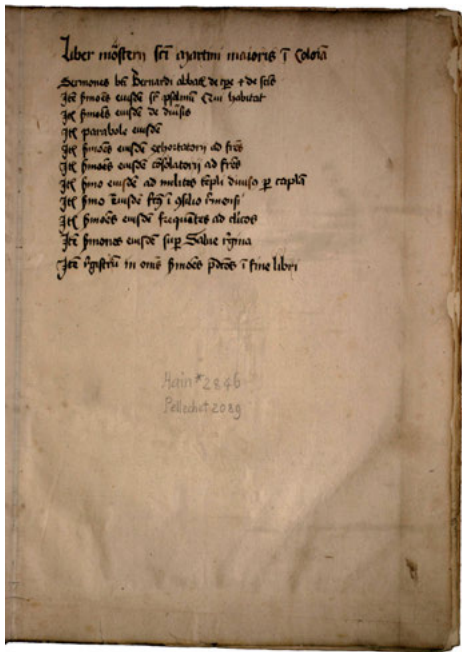 Liber mōsterij sct̄i martini maioris ī Colōia
Sermones bt̄i Bernardi abbat̄ de tp̄e ⁊ de sct̄is
Itē s̄mōes eiusdē sr̄ psalmū Qui habitat
Itē s̄mōes eiusdē de diuīsis
Itē parabole eiusdē
Itē s̄mōes eiusdē exhortatorij ad fr̄es
Itē s̄mōes eiusdē cōsolatorij ad fr̄es
Itē s̄mo eiusdē ad milites tēpli diuisꝰ ꝑ capl̄a
Itē s̄mo eiusdē fct̄ꝰ ī ɔsilio r̄mensi
Itē s̄mōes eiusdē frequētes ad cl̄icos
Itē s̄mones eiusdē suꝑ Salue r̄gina
Itē r̄gistrū in om̄s s̄mōes p̄dc̄os ī fine libri
Hain *2846
Pellechet 2089